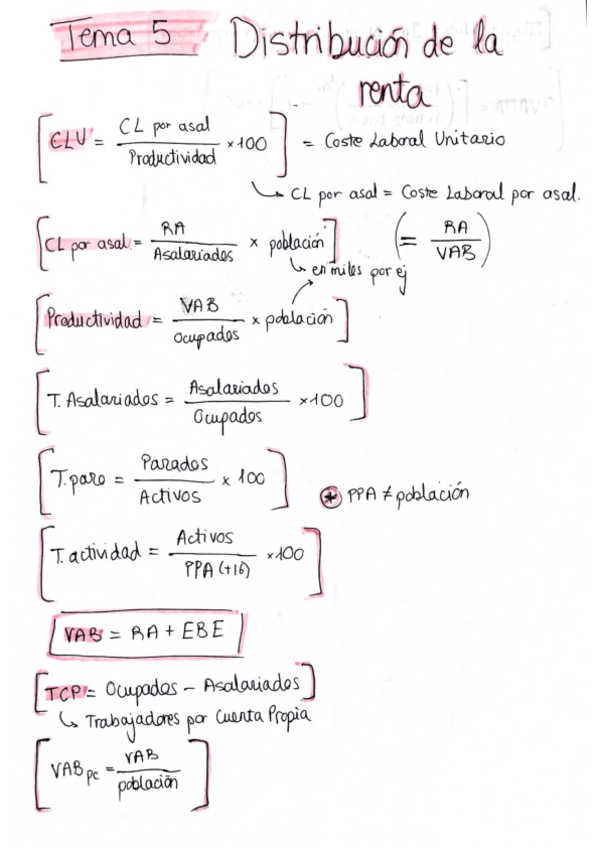 Tema 5 Distribución de la
renta
[CLU = CL por asal / Productividad × 100] = Coste Laboral Unitario
↳ CL por asal = Coste Laboral por asal.
[CL por asal = RA / Asalariados × población] (= RA / VAB)
↳ en miles por ej
[Productividad = VAB / Ocupados × población]
[T. Asalariados = Asalariados / Ocupados ×100]
[T. paro = Parados / Activos × 100] * PPA ≠ población
[T. actividad = Activos / PPA (+16) ×100]
VAB = RA + EBE
[TCP = Ocupados - Asalariados]
↳ Trabajadores por Cuenta Propia
[VAB pc = VAB / población]